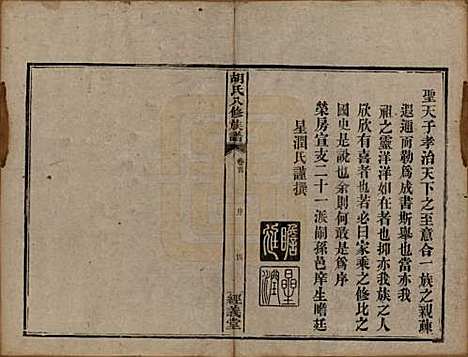 聖天子孝治天下之至意合一族之親疎
遐邇而勒爲成書斯舉也當亦我
祖之靈洋洋如在者也抑亦我族之人
欣欣有喜者也若必曰家乘之修比之
國史是說也余則何敢是爲序
榮房宣支二十一派嗣孫邑庠生瞻廷
星潤氏謹撰
瞻廷
星潤
胡氏八修族譜
卷首
序
經義堂